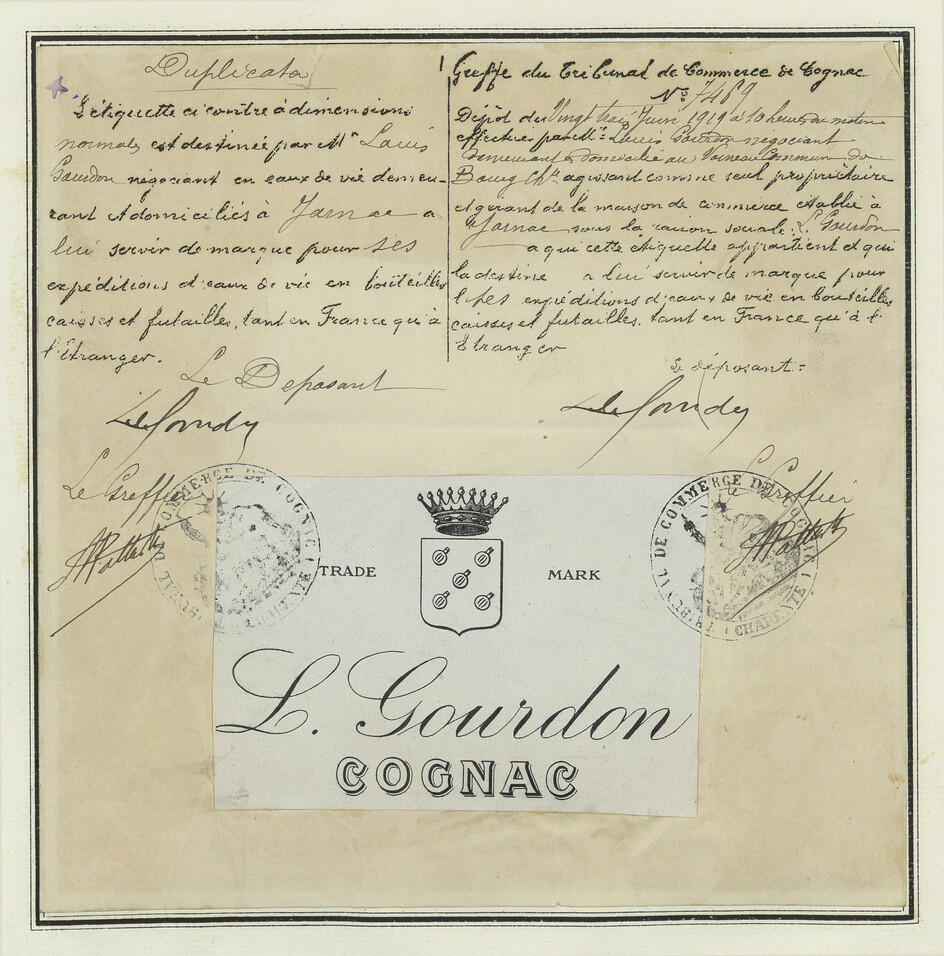 Duplicata
L'étiquette ci contre à dimensions
normales est destinée par Mr Louis
Gourdon négociant en eaux de vie demeu-
rant et domiciliés à Jarnac a
lui servir de marque pour ses
expéditions d'eaux de vie en bouteilles
caisses et futailles, tant en France qu'à
l'étranger.
Le Deposant
Le Greffier
Greffe du Tribunal de Commerce de Cognac
No 7489
Dépôt du Vingt trois Juin 1919 à 10 heures du matin
effectué par Mr Louis Gourdon négociant
demeurant & domicilié au Commun de
Bourg Chte agissant comme seul propriétaire
et gérant de la maison de commerce établie à
Jarnac sous la raison sociale: L. Gourdon
a qui cette étiquette appartient et qui
la destine a lui servir de marque pour
ses expéditions d'eaux de vie en bouteilles
caisses et futailles, tant en France qu'à l'
Etranger
Le déposant =
Le Greffier
TRIBUNAL DE COMMERCE DE COGNAC (CHARENTE)
TRADE MARK
L. Gourdon
COGNAC
TRIBUNAL DE COMMERCE DE COGNAC (CHARENTE)